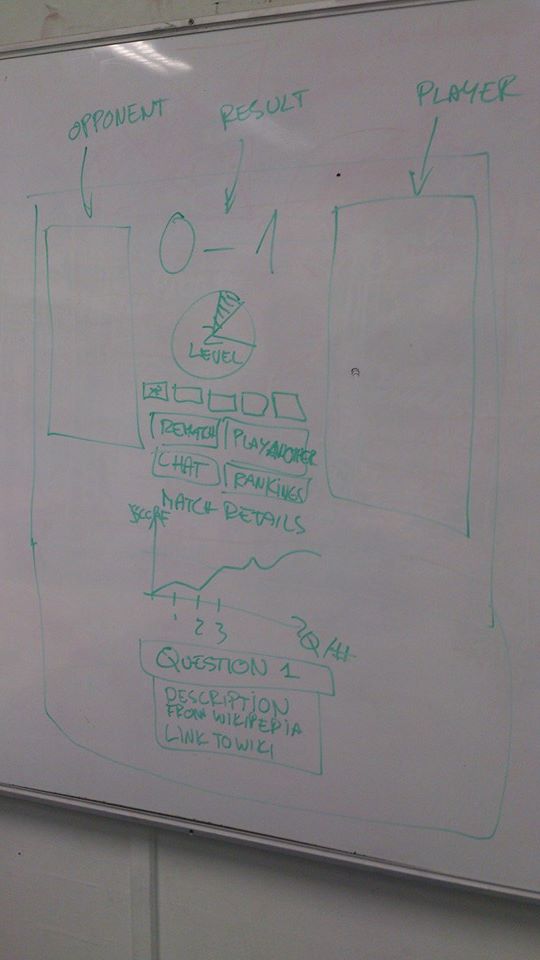 OPPONENT RESULT PLAYER
0-1
LEVEL
REMATCH PLAY ANOTHER
CHAT RANKINGS
MATCH DETAILS
SCORE
1 2 3
Q/#
QUESTION 1
DESCRIPTION
FROM WIKIPEDIA
LINK TO WIKI